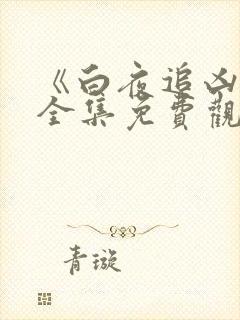 《白夜追凶
全集免費觀
青璇